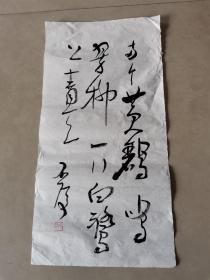 两个黄鹂鸣
翠柳一行白鹭
上青天